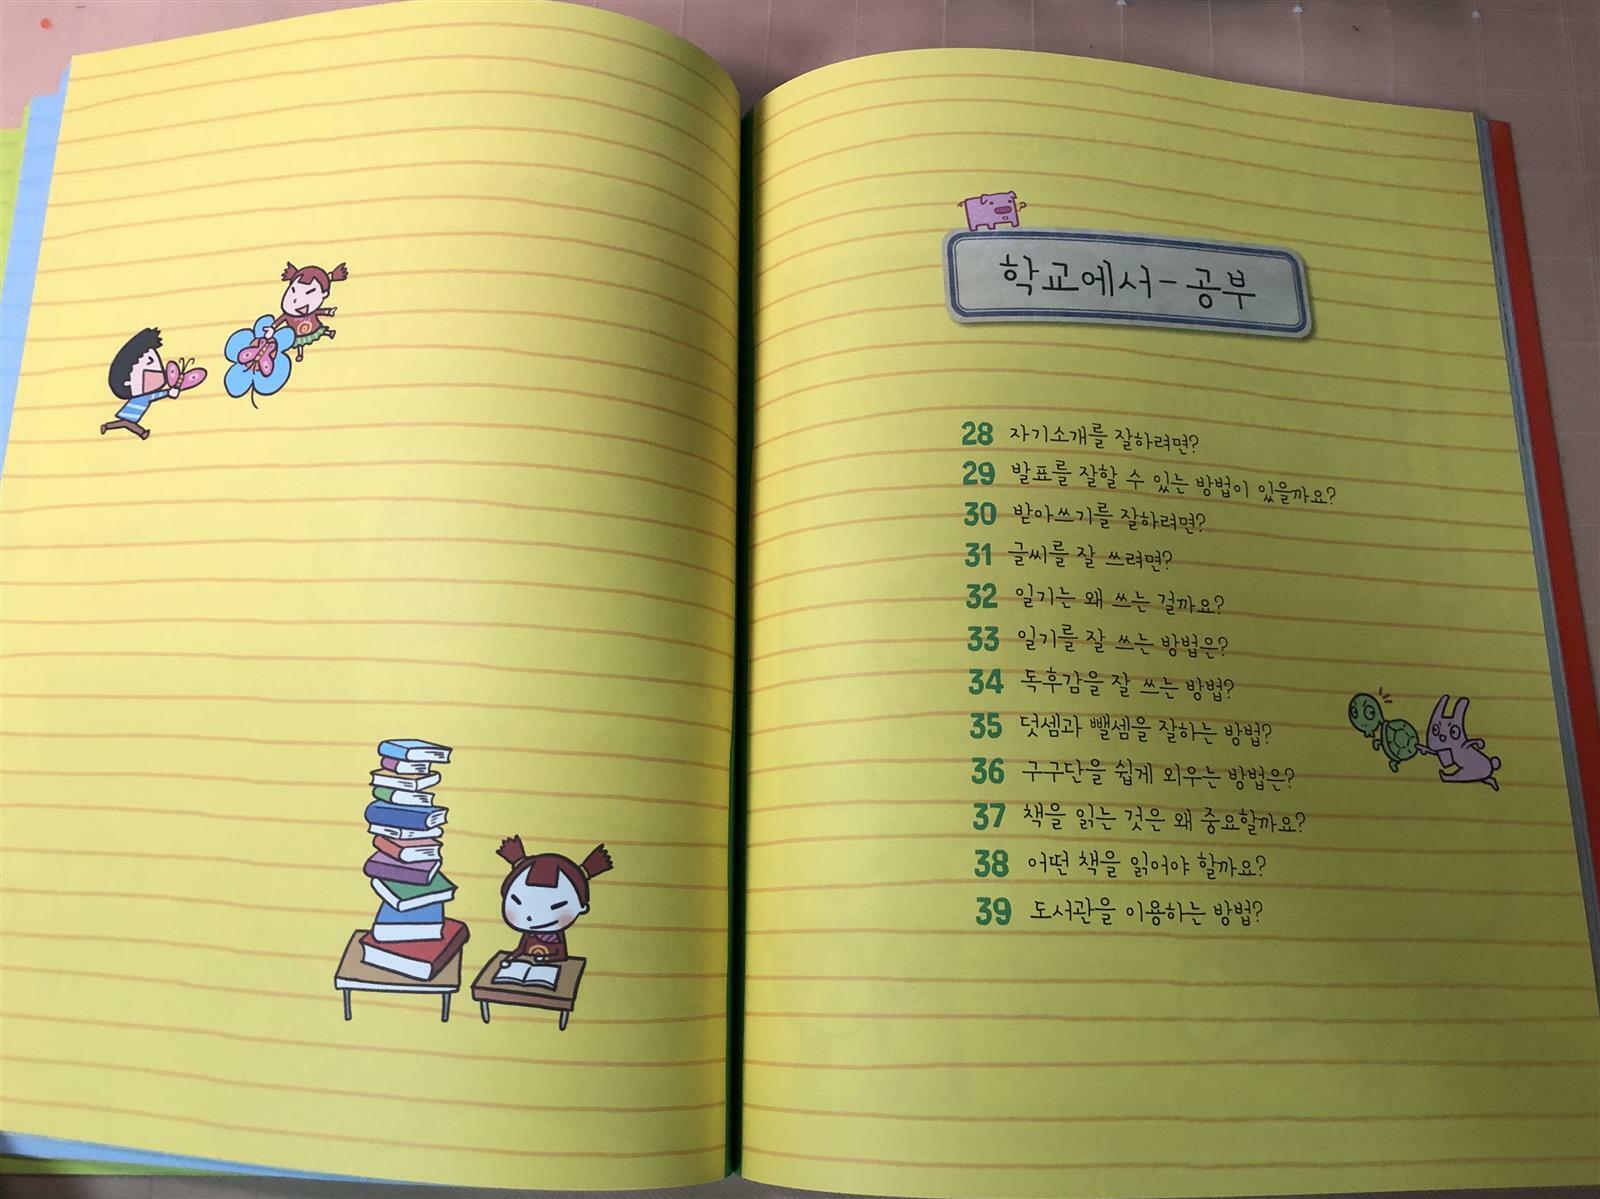 학교에서-공부
28 자기소개를 잘하려면?
29 발표를 잘할 수 있는 방법이 있을까요?
30 받아쓰기를 잘하려면?
31 글씨를 잘 쓰려면?
32 일기는 왜 쓰는 걸까요?
33 일기를 잘 쓰는 방법은?
34 독후감을 잘 쓰는 방법?
35 덧셈과 뺄셈을 잘하는 방법?
36 구구단을 쉽게 외우는 방법은?
37 책을 읽는 것은 왜 중요할까요?
38 어떤 책을 읽어야 할까요?
39 도서관을 이용하는 방법?